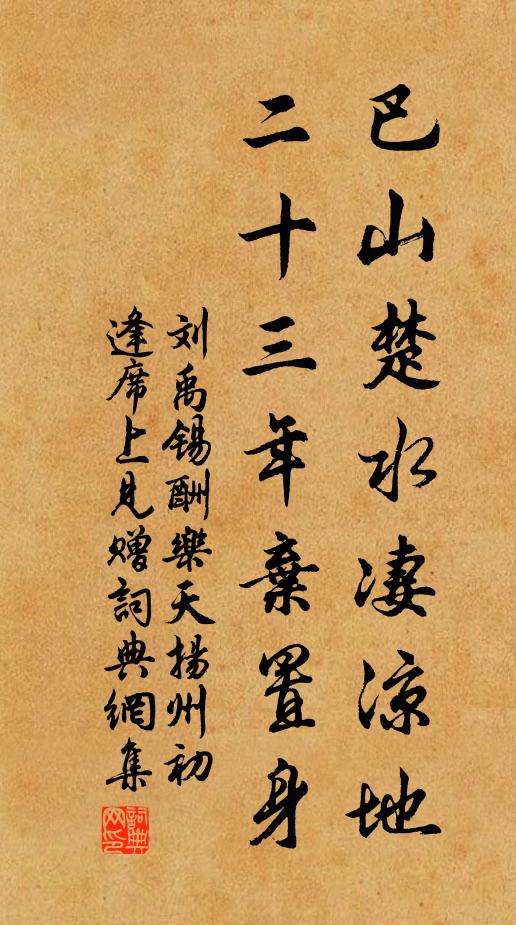 巴山楚水凄涼地
二十三年棄置身
刘禹锡酬樂天揚州初
逢席上見贈詞典網集
詞典网印